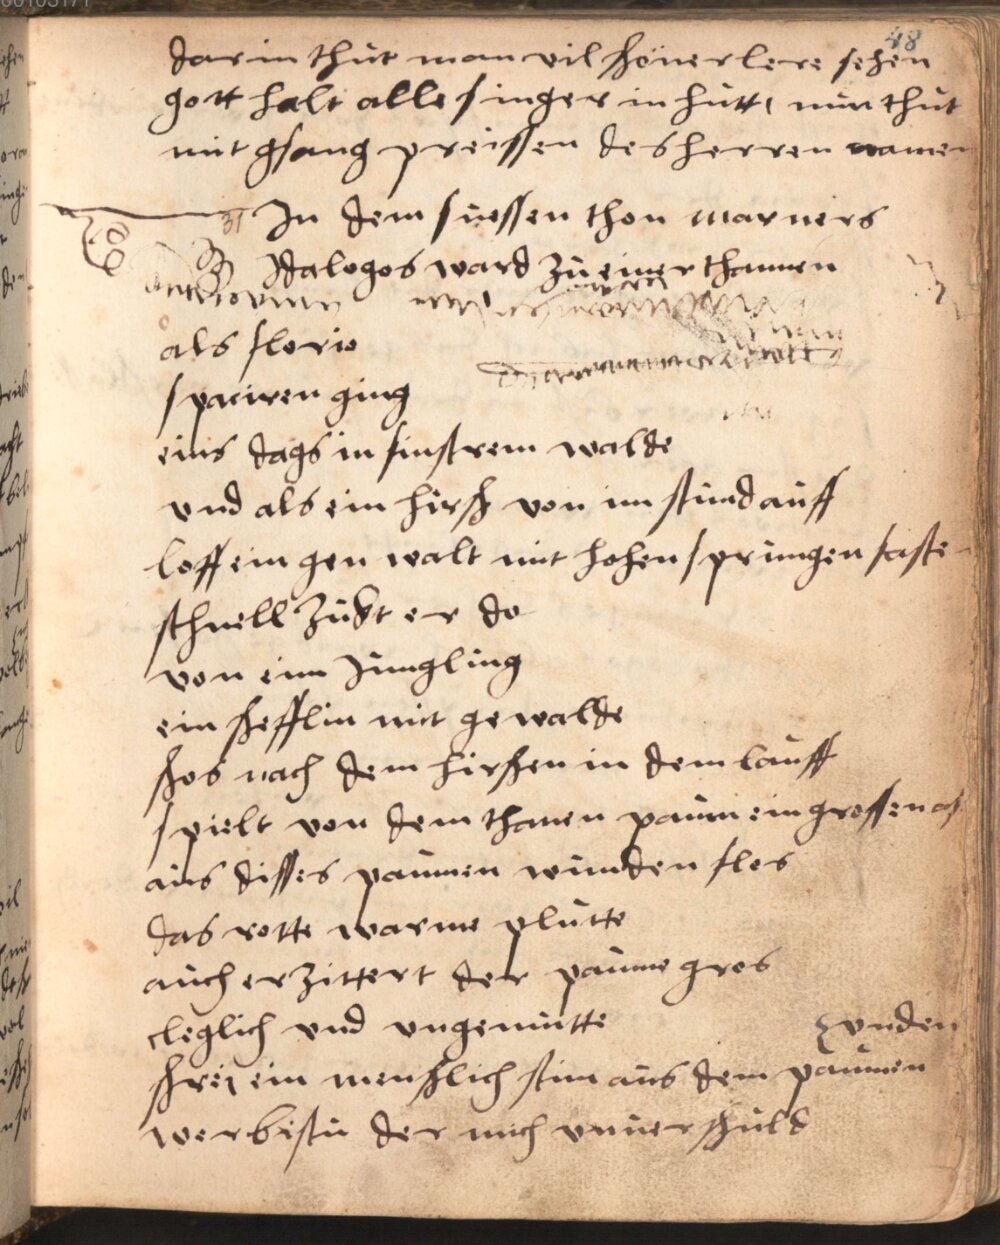 48
darin thůt man vil schöner lere sehen
gott halt alle singer in hůtt nůn thůt
mit gsang preissen des herren namen
31 In dem suessen thon marners
Idalogos ward zů einer thannen
als florio
spaciren ging
eins dags in finstrem walde
und als ein hirsch von im stůnd auff
loff ein gen walt mit hohen sprůngen faste
schnell zůkt er do
von eim Jůngling
ein schefflin mit gewalde
schos nach dem hirschen in dem laůff
spielt von dem thanen paům ein grossen ast
aůs disses paůmen wůnden flos
das rotte warme plůtte
aůch erzittert der paůme gros
cleglich vnd vngemůtte
vnden
schrei ein menschlich stim aůs dem paůmen
wer bistů der mich vnuerschůld